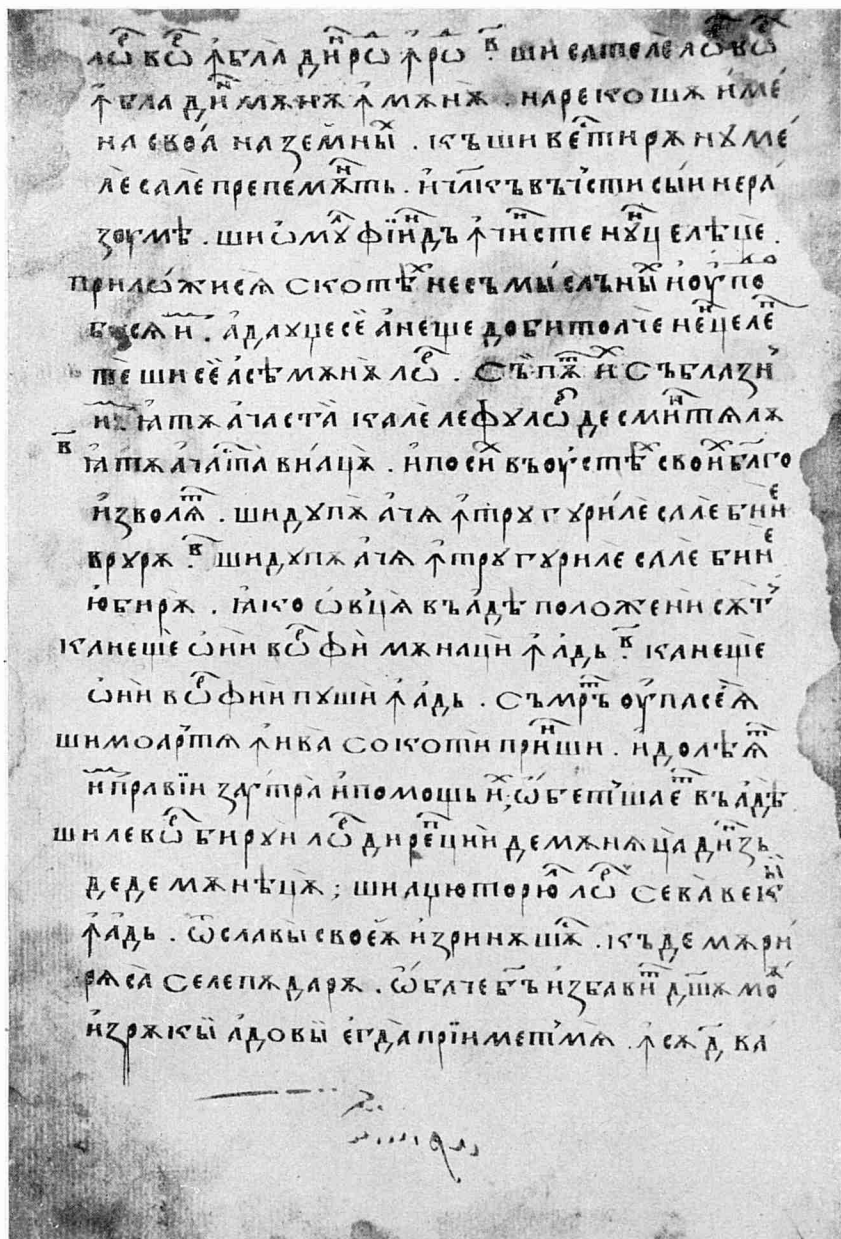 лѡⷬ҇ вѡⷬ҇ ꙟбла диⷩ҇ рѡⷣ ꙟрѡⷣ в҃ шисателелѡⷬ҇ вѡⷬ҇
ꙟбла диⷩ҇ мѫнѫ ꙟмѫнѫ . нарекошѫ и́ме́
на своа̀ наземныⷯ . къши ве́стирѫ нꙋме́
ле сале препемѫⷩ҇ть . и҆чл҃къ въчⷭ҇ти сы́и нера́
зоумѣ . ши ѡ҆мꙋⷧ҇ фїиⷩ҇дъ ꙟчинсте нꙋⷩ҇целѣцѐ .
прило́жисѧ скотѣⷯ несъмы́сльныⷯ и҆оу҆по
бисѧ и҆м . а҆дауцесе̏ а҆неще добитолче неⷩ҇целеⷭ҇
те шисе̏ асѣмѫнѫ лѡⷬ҇ . Сѣ пѫⷮ и҆ⷯ съблазⷩ҇и
и҆м ꙗ҆тѫ ачаста̀ кале лефꙋлѡⷬ҇ десмиⷩ҇тѧлѫ
в҃ ꙗ҆тѫ ачаⷭ҇та вїацѫ . и҆поси́ въоу҆стѣⷯ свои́ⷯ бл҃го
и҆зволѧⷮ . шидꙋпѫ ачѧ ꙟтрꙋ гꙋри́ле сале бин́е
врꙋрѫ в҃ шидꙋпѫ ачѧ ꙟтрꙋ гꙋриле сале бине
ю҆бирѫ . ꙗ҆ко ѡ҆вцѧ въа҆дѣ положени сѫⷮ
канеще ѡ҆и́и вѡⷬ҇ фи́ мѫнаци ꙟа҆дь в҃ канеще
ѡ҆и́и вѡⷬ҇ фи́и пꙋши ꙟа҆дь . Съмрⷮъ оу҆пасеѧ̀
шимоартѧ ꙟива сокоти приⷩ҇ши . и҆долѣѧⷮ
и҆м правїи заꙋтра̀ и҆помощь иⷯ ѡ҆бетшаеⷮ въа҆дѣ
шилевѡⷬ҇ бирꙋи лѡⷬ҇ дирепции демѫнѧца диⷩ҇зъ
деде мѫнѣцѫ ; шиацюторюⷧ҇ лѡⷬ҇ севавеки
ꙟа҆дь . ѿславы своеѫ̀ и҆зринѫшѫⷭ҇ . къде мѫри́
рѧса̀ селепѧдарѫ . ѡ҆баче бъ҃ и҆збавиⷮ дш҃ѫ моѫ
и҆зрѫкы̏ а҆довы̏ є҆гда̀ прїиметмѧ . ꙟсѫ дⷭ҇ ва